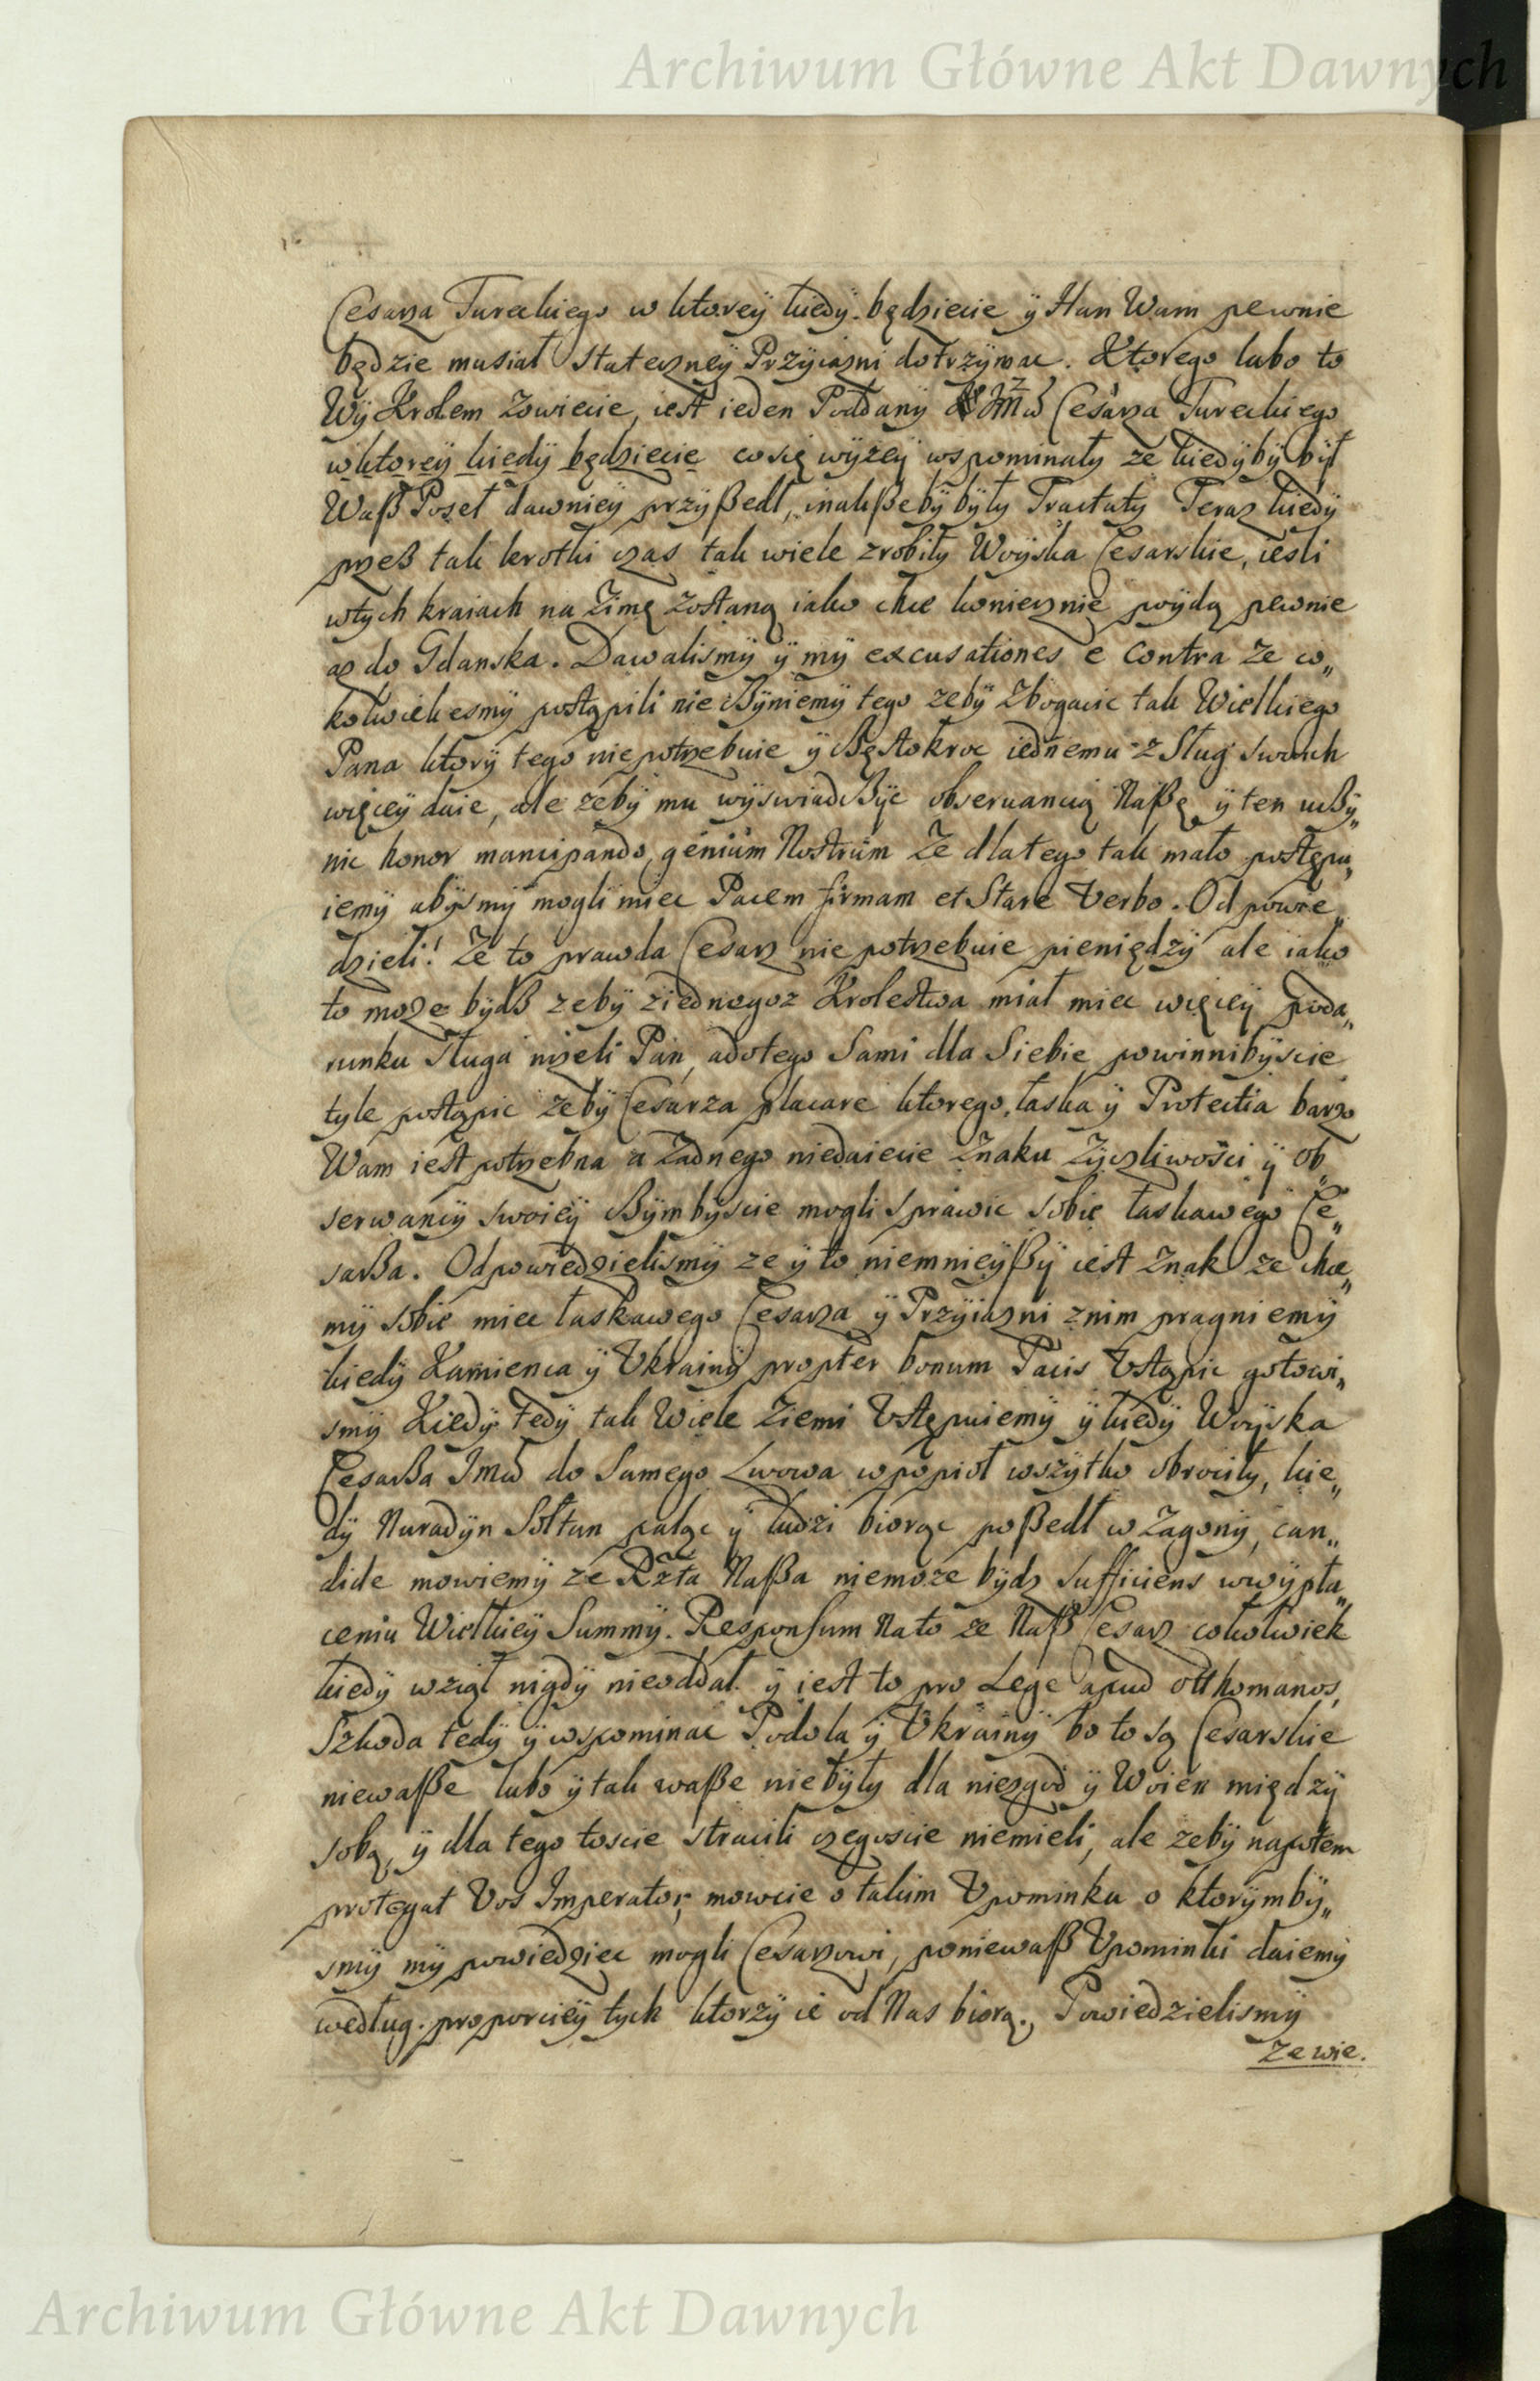 Archiwum Główne Akt Dawnych
Cesarza Tureckiego w ktorey kiedy będziecie ÿ Han Wam pewnie
będzie musiał Stateczneÿ Przÿiazni dotrzÿmac. Ktorego lubo to
Wÿ Krolem Zowiecie, iest ieden Poddanÿ Cesarza Tureckiego
w ktoreÿ kiedÿ będziecie co się wÿzeÿ wspominały ze kiedÿbÿ bÿł
Waß Poseł dawnieÿ przÿßedł, inakßebÿ bÿłÿ Tractatÿ Teraz kiedÿ
przeß tak krotki czas tak wiele zrobiłÿ Woÿska Cesarskie, iesli
wtych kraiach na Zimę Zostaną iako chce koniecznie poÿdą pewnie
az do Gdanska. Dawalismÿ ÿ mÿ excusationes e contra Ze co„
kolwiekesmÿ postąpili nie cßÿniemÿ tego zebÿ Zbogacic tak Wielkiego
Pana ktorÿ tego niepotrzebuie ÿ cßęstokroc iednemu z Sług swoich
więceÿ daie, ale zebÿ mu wÿswiadcßÿc obserwancią Naßę ÿ ten ucßÿ„
nic honor mancipando genium Nostrum Ze dlatego tak mało postępu„
iemÿ abÿsmÿ mogli miec Pacem firmam et Stare Verbo. Odpowie„
dzieli! Ze to prawda Cesarz nie potrzebuie pieniędzÿ ale iako
to moze bÿdß zebÿ ziednegoz Krolestwa miał miec więceÿ poda„
runku Sługa nizeli Pan, adotego Sami dla Siebie powinnibÿscie
tyle postąpic zebÿ Cesarza placare ktorego łaska ÿ Protectia barzo
Wam iest potrzebna a Zadnego niedaiecie Znaku Zÿczliwosci ÿ ob„
serwancÿ swoieÿ cßÿmbÿscie mogli sprawic sobie łaskawego Ce„
sarßa. Odpowiedzielismÿ ze ÿ to niemnieÿßÿ iest Znak ze chce„
mÿ sobie miec łaskawego Cesarza ÿ Przÿiazni znim pragniemÿ
kiedÿ Kamienca ÿ Vkrainÿ propter bonum Pacis Vstąpic gotowi„
smÿ Kiedÿ tedÿ tak Wiele Ziemi Vstępuiemÿ ÿ kiedÿ Woÿska
Cesarßa Jmci do Samego Lwowa w popioł wszÿtko obrociłÿ, kie„
dÿ Nuradÿn Sołtan paląc ÿ ludzi biorąc poßedł w Zagonÿ, can„
dide mowiemÿ ze Rzta Naßa niemoze bÿdz sufficiens wwÿpła„
ceniu Wielkieÿ Summÿ. Responsum Nato ze Naß Cesarz cokolwiek
kiedÿ wziął nigdÿ nieoddał ÿ iest to pro Lege apud otthomanos,
Szkoda tedÿ ÿ wspominac Podola ÿ Vkrainÿ bo to są Cesarskie
niewaßе lubo ÿ tak waße niebÿłÿ dla niezgod ÿ Woien międzÿ
sobą, ÿ dla tego toscie stracili czegoscie niemieli, ale zebÿ napotem
protegat Vos Imperator, mowcie o takim Vpominku o ktorÿmbÿ„
smÿ mÿ powiedziec mogli Cesarzowi, poniewaß Vpominki daiemÿ
według proporcieÿ tych ktorzÿ ie od Nas biorą., Powiedzielismÿ
Ze wie.
Archiwum Główne Akt Dawnych